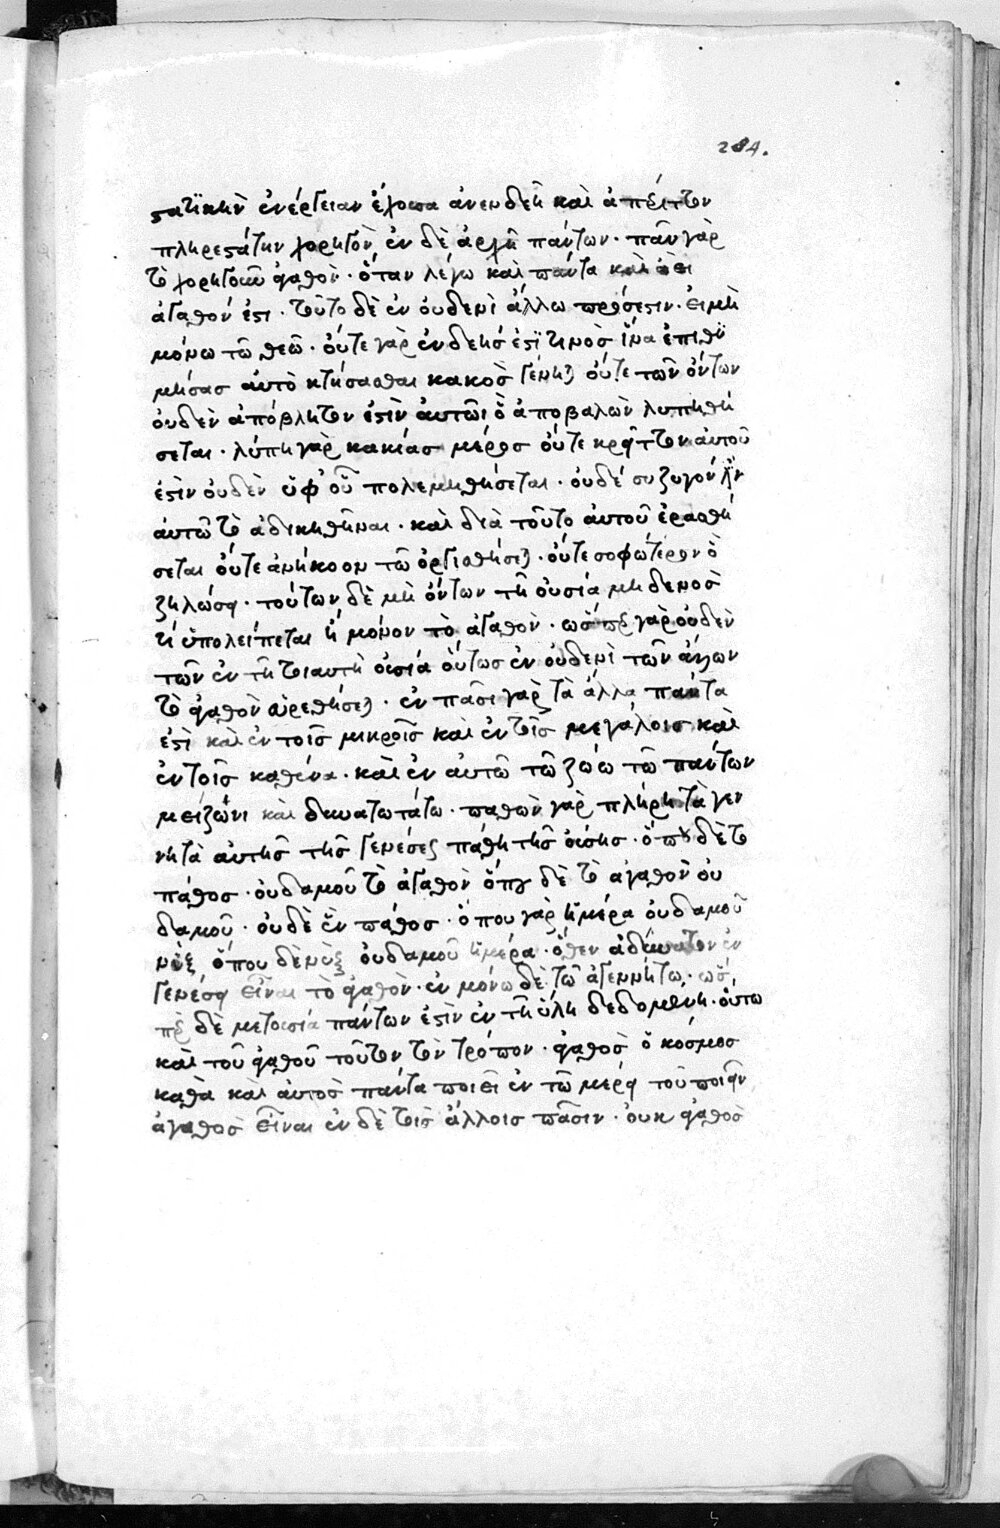 284.
στατϊκὴν ἐνέργειαν ἔχουσα ἀνενδεῆ καὶ ἀπέριττον
πληρεστάτην χορηγὸν ἐν δὲ ἀρχῆ πάντων · πᾶν γὰρ
τὸ χορηγοῦν ἀγαθὸν · ὅταν λέγω καὶ πάντα καὶ ἀεὶ
ἀγαθόν ἐστι · τοῦτο δὲ ἐν οὐδενὶ ἄλλω πρόσεστιν · εἰ μὴ
μόνω τῶ θεῶ · οὔτε γὰρ ἐνδεής ἐστϊ τινὸς ἵνα ἐπιθυ
μήσας αὐτὸ κτήσασθαι κακὸς γένηται οὔτε τῶν ὄντων
οὐδὲν ἀπόβλητον ἐστὶν αὐτῶι ὃ ἀποβαλὼν λυπηθή
σεται · λύπη γὰρ κακίας μέρος οὔτε κρεῖττον αὐτοῦ
ἐστὶν οὐδὲν ὑφ' οὗ πολεμηθήσεται · οὐδὲ συζυγόν ἦν
αὐτῶ τὸ ἀδικηθῆναι · καὶ διὰ τοῦτο αὐτοῦ ἐρασθή
σεται οὔτε ἀνήκοον τῶ ὀργισθήσεται · οὔτε σοφώτερον ὃ
ζηλώσει · τούτων δὲ μὴ ὄντων τῆ οὐσία μηδενὸς
τί ὑπολείπεται ἢ μόνον τὸ ἀγαθὸν · ὥσπερ γὰρ οὐδὲν
τῶν ἐν τῆ τοιαυτὴ οὐσία οὕτως ἐν οὐδενὶ τῶν ἄλλων
τὸ ἀγαθὸν εὑρεθήσεται · ἐν πᾶσι γὰρ τὰ ἄλλα πάντα
ἐστὶ καὶ ἐν τοῖς μικροῖς καὶ ἐν τοῖς μεγάλοις καὶ
ἐν τοῖς καθένα · καὶ ἐν αὐτῶ τῶ ζώω τῶ πάντων
μείζωνι καὶ δυνατωτάτω · παθῶν γὰρ πλήρη τὰ γεν
νητὰ αὐτῆς τῆς γενέσεως παθητῆς οὔσης · ὅπου δὲ τὸ
πάθος · οὐδαμοῦ τὸ ἀγαθὸν ὅπου δὲ τὸ ἀγαθὸν οὐ
δαμοῦ · οὐδὲ ἓν πάθος · ὅπου γὰρ ἡμέρα οὐδαμοῦ
νὺξ ὅπου δὲ νὺξ οὐδαμοῦ ἡμέρα · ὅθεν ἀδύνατον ἐν
γενέσει εἶναι τὸ ἀγαθὸν · ἐν μόνω δὲ τῶ ἀγεννήτω · ὥσ
περ δὲ μετουσία πάντων ἐστὶν ἐν τῆ ὕλη δεδομένη · οὕτω
καὶ τοῦ ἀγαθοῦ τοῦτον τὸν τρόπον · ἀγαθὸς ὁ κόσμος
καθὰ καὶ αὐτὸς πάντα ποιεῖ ἐν τῶ μέρει τοῦ ποιεῖν
ἀγαθὸς εἶναι ἐν δὲ τοῖς ἄλλοις πᾶσιν · οὐκ ἀγαθὸς